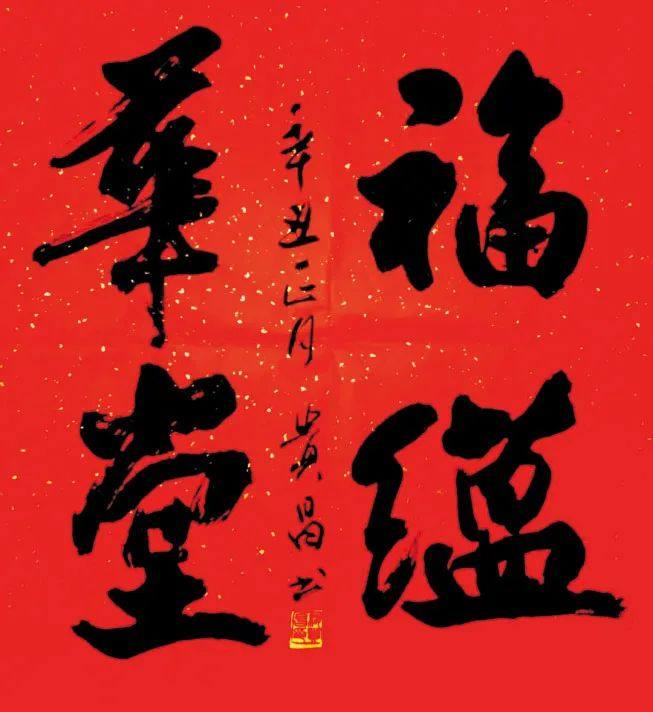 福蘊
華堂
辛丑正月 貴昌书